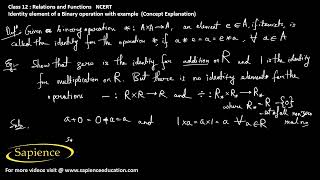 Class 12 : Relations and Functions NCERT
Identity element of a Binary operation with example (Concept Explanation)
Def: Given a binary operation *: A×A→A, an element e∈A, if it exists, is
called the identity for the operation * if a*e = a = e*a, ∀ a∈A
Eg: Show that zero is the identity for addition on R and 1 is the identity
for multiplication on R. But there is no identity element for the
operations − : R×R→R and ÷ : R*×R*→R*
where R* = R − {0}
set of all non zero
real no
Soln. a+0 = 0+a = a and 1×a = a×1 = a ∀ a∈R
So
Sapience
For more videos visit @ www.sapienceeducation.com